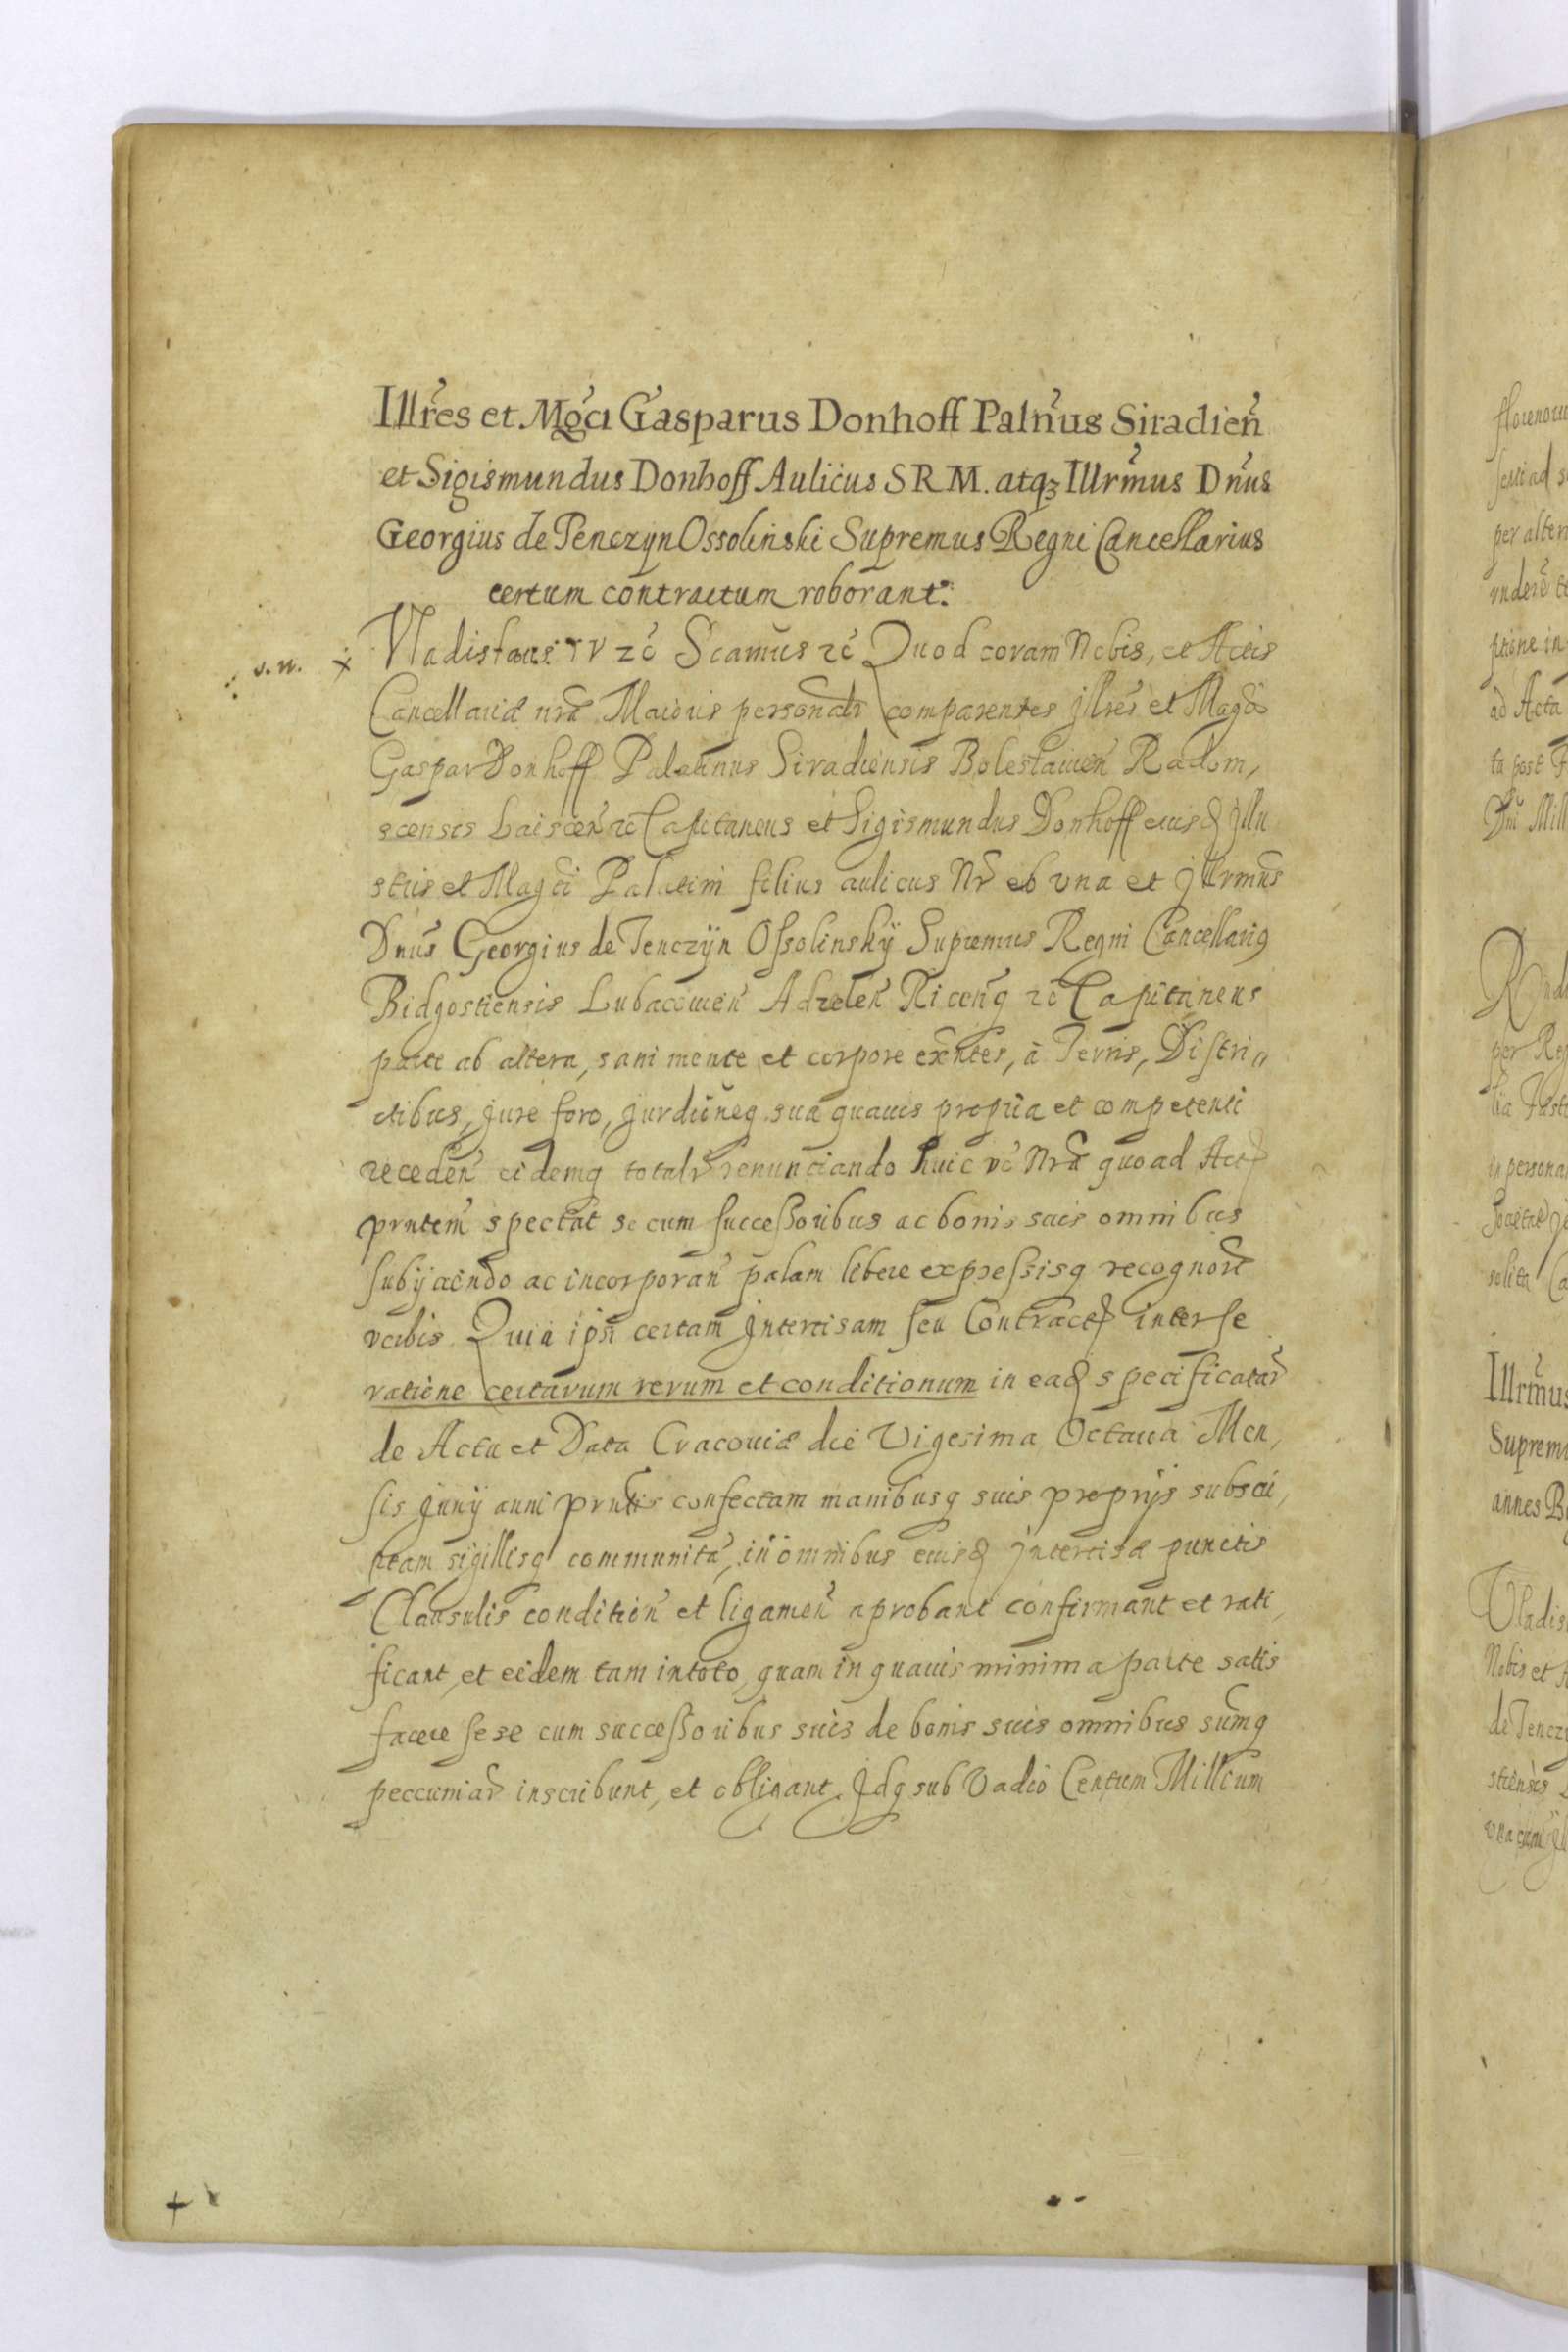 Illr̃es et Mgcı Gasparus Donhoff Palñus Siradień
et Sigismundus Donhoff Aulicus SRM. atqz Illrm̃us Dñus
Georgius de Tenczyn Ossolinski Supremus Regni Cancellarius
certum contractum roborant.
v. n. x Vladislaus IV zc̃ Scamus zc̃ Quod coram Nobis, et Actis
Cancellariæ nrã Maioris personalr̃ comparentes Jllrẽs et Magci
Gaspar Donhoff Palatinus Siradiensis Boleslauień Radom,
scensis zc̃ Capitaneus et Sigismundus Donhoff eiusd Jllu
stris et Magci Palatini filius aulicus Nr̃ ab vna et Jllrm̃us
Dnus Georgius de Tenczÿn Ossolinskÿ Supremus Regni Cancellariq
Bidgostiensis Lubacouień Adzelen̄ Ricenq zc̃ Capitaneus
parte ab altera, sani mente et corpore exñtes, à Terris, Distri„
ctibus, jure foro, jurdic̃neq sua quauis propria et competenti
receden̄ eidemq totalr̃ renunciando huic vc̃ Nrã quo ad Act
prntem̃ spectat se cum successoribus ac bonis suis omnibus
subijciendo ac incorporan̄ palam libere expressisq recognor̃t
verbis. Quia ipsi certam Intercisam seu Contract inter se
ratione certarum rerum et conditionum in ead specificatar̃
de Actu et Data Cracouiæ die Vigesima Octaua Men,
sis Junÿ anni prñtis confectam manibusq suis proprijs subscri,
ptam sigillisq communitã, in omnibus eiusd Intercisæ punctis
Clausulis condition̄ et ligamen̄ aprobant confirmant et rati,
ficant, et eidem tam in toto, quam in quauis minima parte satis
facere sese cum successoribus suis de bonis suis omnibus sum̃q
peccuniar̃ inscribunt, et obligant. Jdq sub Vadio Centum Millium
florenoru
per altern
ad Acta
ta post
Illrmus
Suprem
annes B
Vladis
Nobis et
de Tencz
stiensis